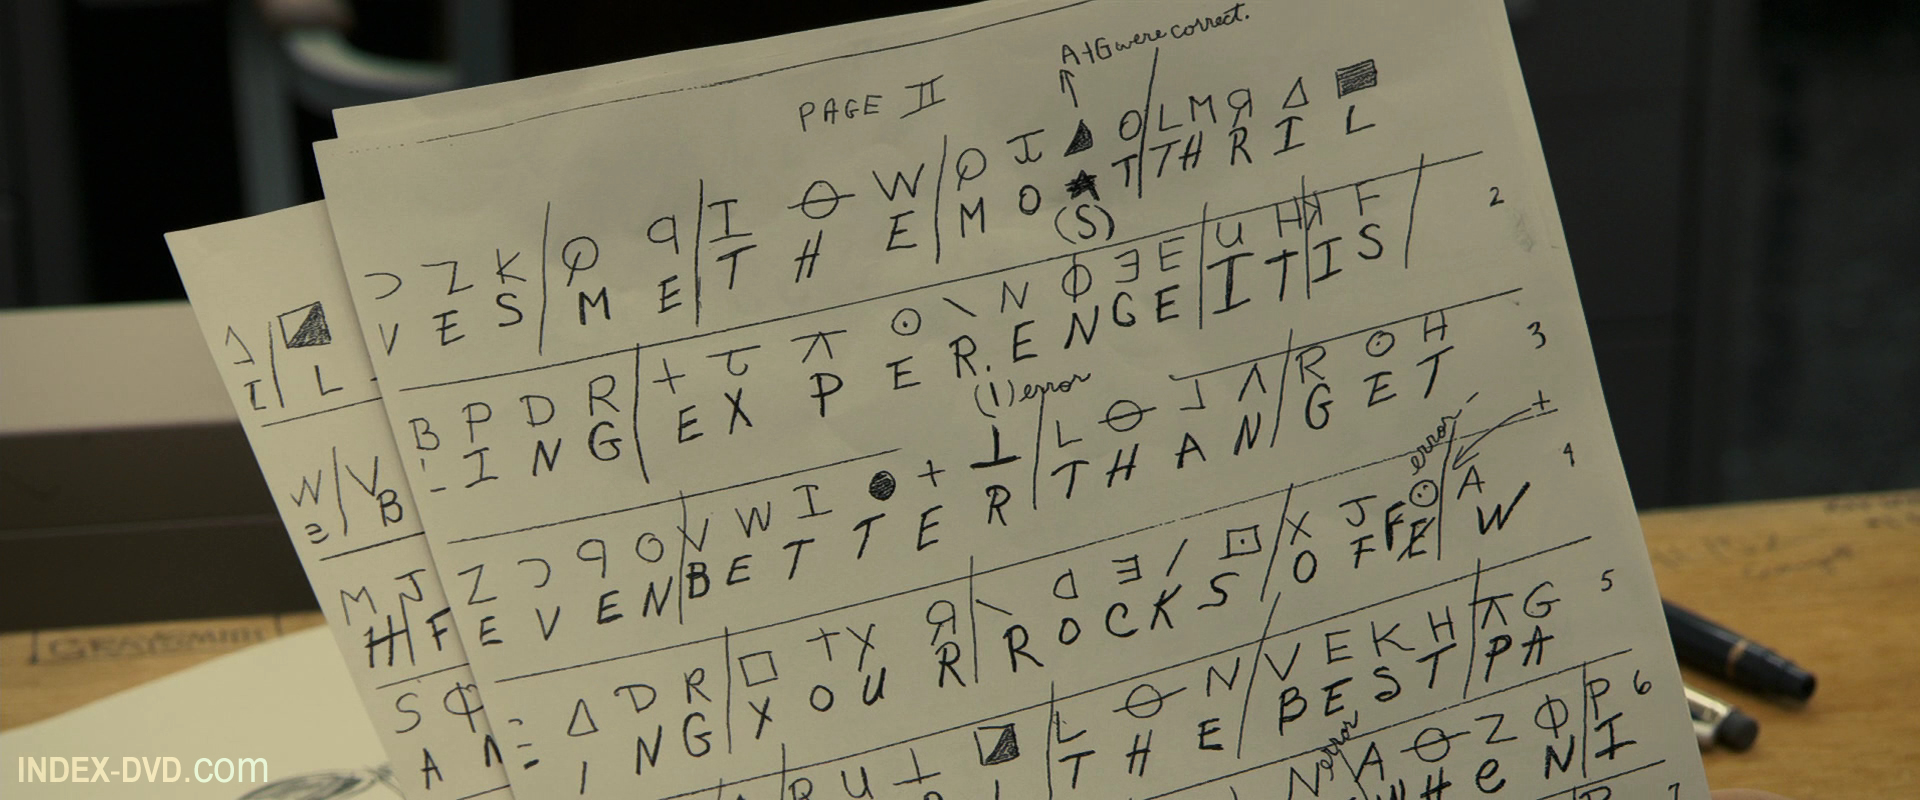 A+G were correct.
PAGE II
Ɔ Z K / Q q / I ⊖ W / Q I ◢ O / L M Я Δ ▤
V E S / M E / T H E / M O ★ T / T H R I L
(S)
2
B P D R / + τ ⊼ ⊙ \ N Φ Ǝ E / U H / ꓘ F /
I N G / E X P E R. E N G E / I T / I S /
(I) error
3
Z Ɔ q O / V W I ● + ⊥ / L ⊖ ⅃ Λ / R ⊙ H
E V E N / B E T T E R / T H A N / G E T
error +
4
Δ D R / □ + Y Я / \ ᗡ Ǝ / ⊡ / X J F ⊙ / A
I N G / Y O U R / R O C K S / O F F E / W
5
R U ⊥ ◪ / L ⊖ N / V E K H / ⊼ G
T H E / B E S T / P A
error
6
N A ⊖ Z Φ / P
W H e N / I
7
I / L
W / V
B
M J
H / F
S Φ
A
INDEX-DVD.com